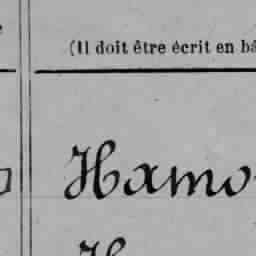 (Il doit être écrit en bâ
Hamo